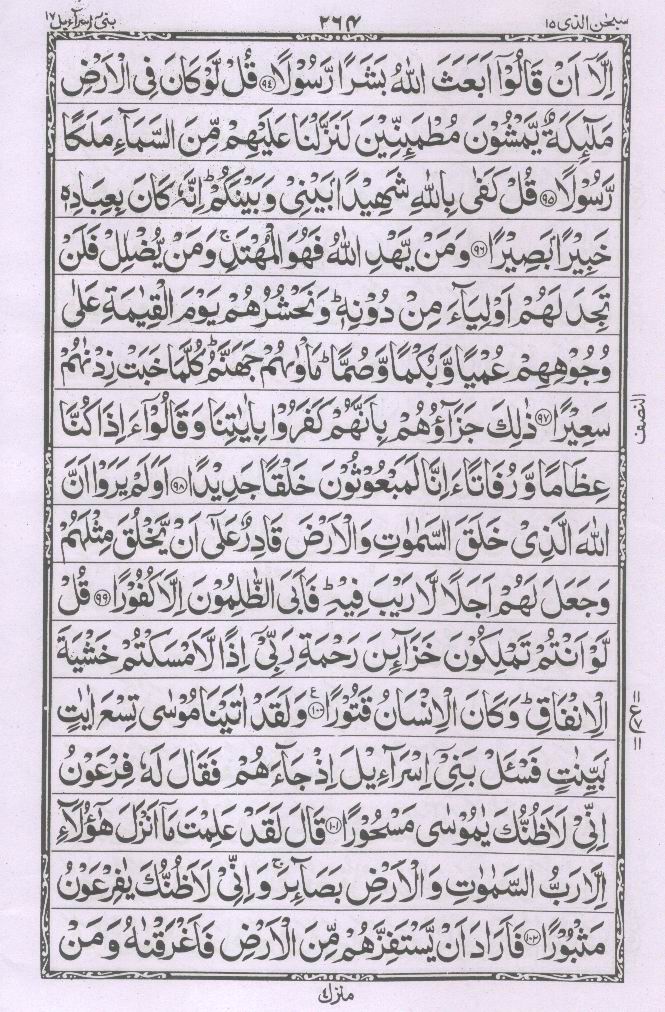 سبحٰن الذی ۱۵ ۲۶۴ بنیٓ اسرآءیل ۱۷
اِلَّاۤ اَنْ قَالُوْۤا اَبَعَثَ اللّٰهُ بَشَرًا رَّسُوْلًا ﴿۹۴﴾ قُلْ لَّوْ كَانَ فِی الْاَرْضِ
مَلٰٓىِٕكَةٌ یَّمْشُوْنَ مُطْمَىِٕنِّیْنَ لَنَزَّلْنَا عَلَیْهِمْ مِّنَ السَّمَآءِ مَلَكًا
رَّسُوْلًا ﴿۹۵﴾ قُلْ كَفٰی بِاللّٰهِ شَهِیْدًۢا بَیْنِیْ وَ بَیْنَكُمْ ؕ اِنَّهٗ كَانَ بِعِبَادِهٖ
خَبِیْرًۢا بَصِیْرًا ﴿۹۶﴾ وَ مَنْ یَّهْدِ اللّٰهُ فَهُوَ الْمُهْتَدِ ۚ وَ مَنْ یُّضْلِلْ فَلَنْ
تَجِدَ لَهُمْ اَوْلِیَآءَ مِنْ دُوْنِهٖ ؕ وَ نَحْشُرُهُمْ یَوْمَ الْقِیٰمَةِ عَلٰی
وُجُوْهِهِمْ عُمْیًا وَّ بُكْمًا وَّ صُمًّا ؕ مَاْوٰىهُمْ جَهَنَّمُ ؕ كُلَّمَا خَبَتْ زِدْنٰهُمْ
سَعِیْرًا ﴿۹۷﴾ ذٰلِكَ جَزَآؤُهُمْ بِاَنَّهُمْ كَفَرُوْا بِاٰیٰتِنَا وَ قَالُوْۤا ءَاِذَا كُنَّا
النصف
عِظَامًا وَّ رُفَاتًا ءَاِنَّا لَمَبْعُوْثُوْنَ خَلْقًا جَدِیْدًا ﴿۹۸﴾ اَوَ لَمْ یَرَوْا اَنَّ
اللّٰهَ الَّذِیْ خَلَقَ السَّمٰوٰتِ وَ الْاَرْضَ قَادِرٌ عَلٰۤی اَنْ یَّخْلُقَ مِثْلَهُمْ
وَ جَعَلَ لَهُمْ اَجَلًا لَّا رَیْبَ فِیْهِ ؕ فَاَبَی الظّٰلِمُوْنَ اِلَّا كُفُوْرًا ﴿۹۹﴾ قُلْ
لَّوْ اَنْتُمْ تَمْلِكُوْنَ خَزَآىِٕنَ رَحْمَةِ رَبِّیْۤ اِذًا لَّاَمْسَكْتُمْ خَشْیَةَ
الْاِنْفَاقِ ؕ وَ كَانَ الْاِنْسَانُ قَتُوْرًا ﴿۱۰۰﴾ ع وَ لَقَدْ اٰتَیْنَا مُوْسٰی تِسْعَ اٰیٰتٍۭ
بَیِّنٰتٍ فَسْـَٔلْ بَنِیْۤ اِسْرَآءِیْلَ اِذْ جَآءَهُمْ فَقَالَ لَهٗ فِرْعَوْنُ
اِنِّیْ لَاَظُنُّكَ یٰمُوْسٰی مَسْحُوْرًا ﴿۱۰۱﴾ قَالَ لَقَدْ عَلِمْتَ مَاۤ اَنْزَلَ هٰۤؤُلَآءِ
اِلَّا رَبُّ السَّمٰوٰتِ وَ الْاَرْضِ بَصَآىِٕرَ ۚ وَ اِنِّیْ لَاَظُنُّكَ یٰفِرْعَوْنُ
مَثْبُوْرًا ﴿۱۰۲﴾ فَاَرَادَ اَنْ یَّسْتَفِزَّهُمْ مِّنَ الْاَرْضِ فَاَغْرَقْنٰهُ وَ مَنْ
منزل ٤